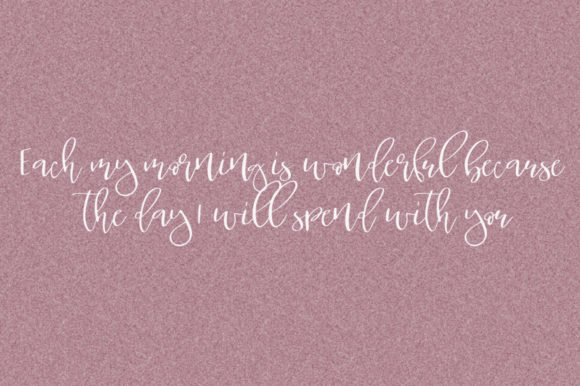 Each my morning is wonderful because
the day I will spend with you